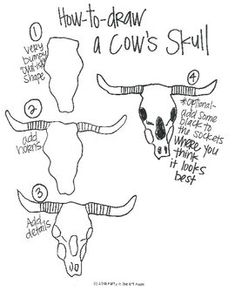 How-to-draw
a Cow's Skull
1
very
bumpy
shape
2
add
horns
3
Add
details
4
*optional-
add some
black to
the sockets
where you
think
it looks
best